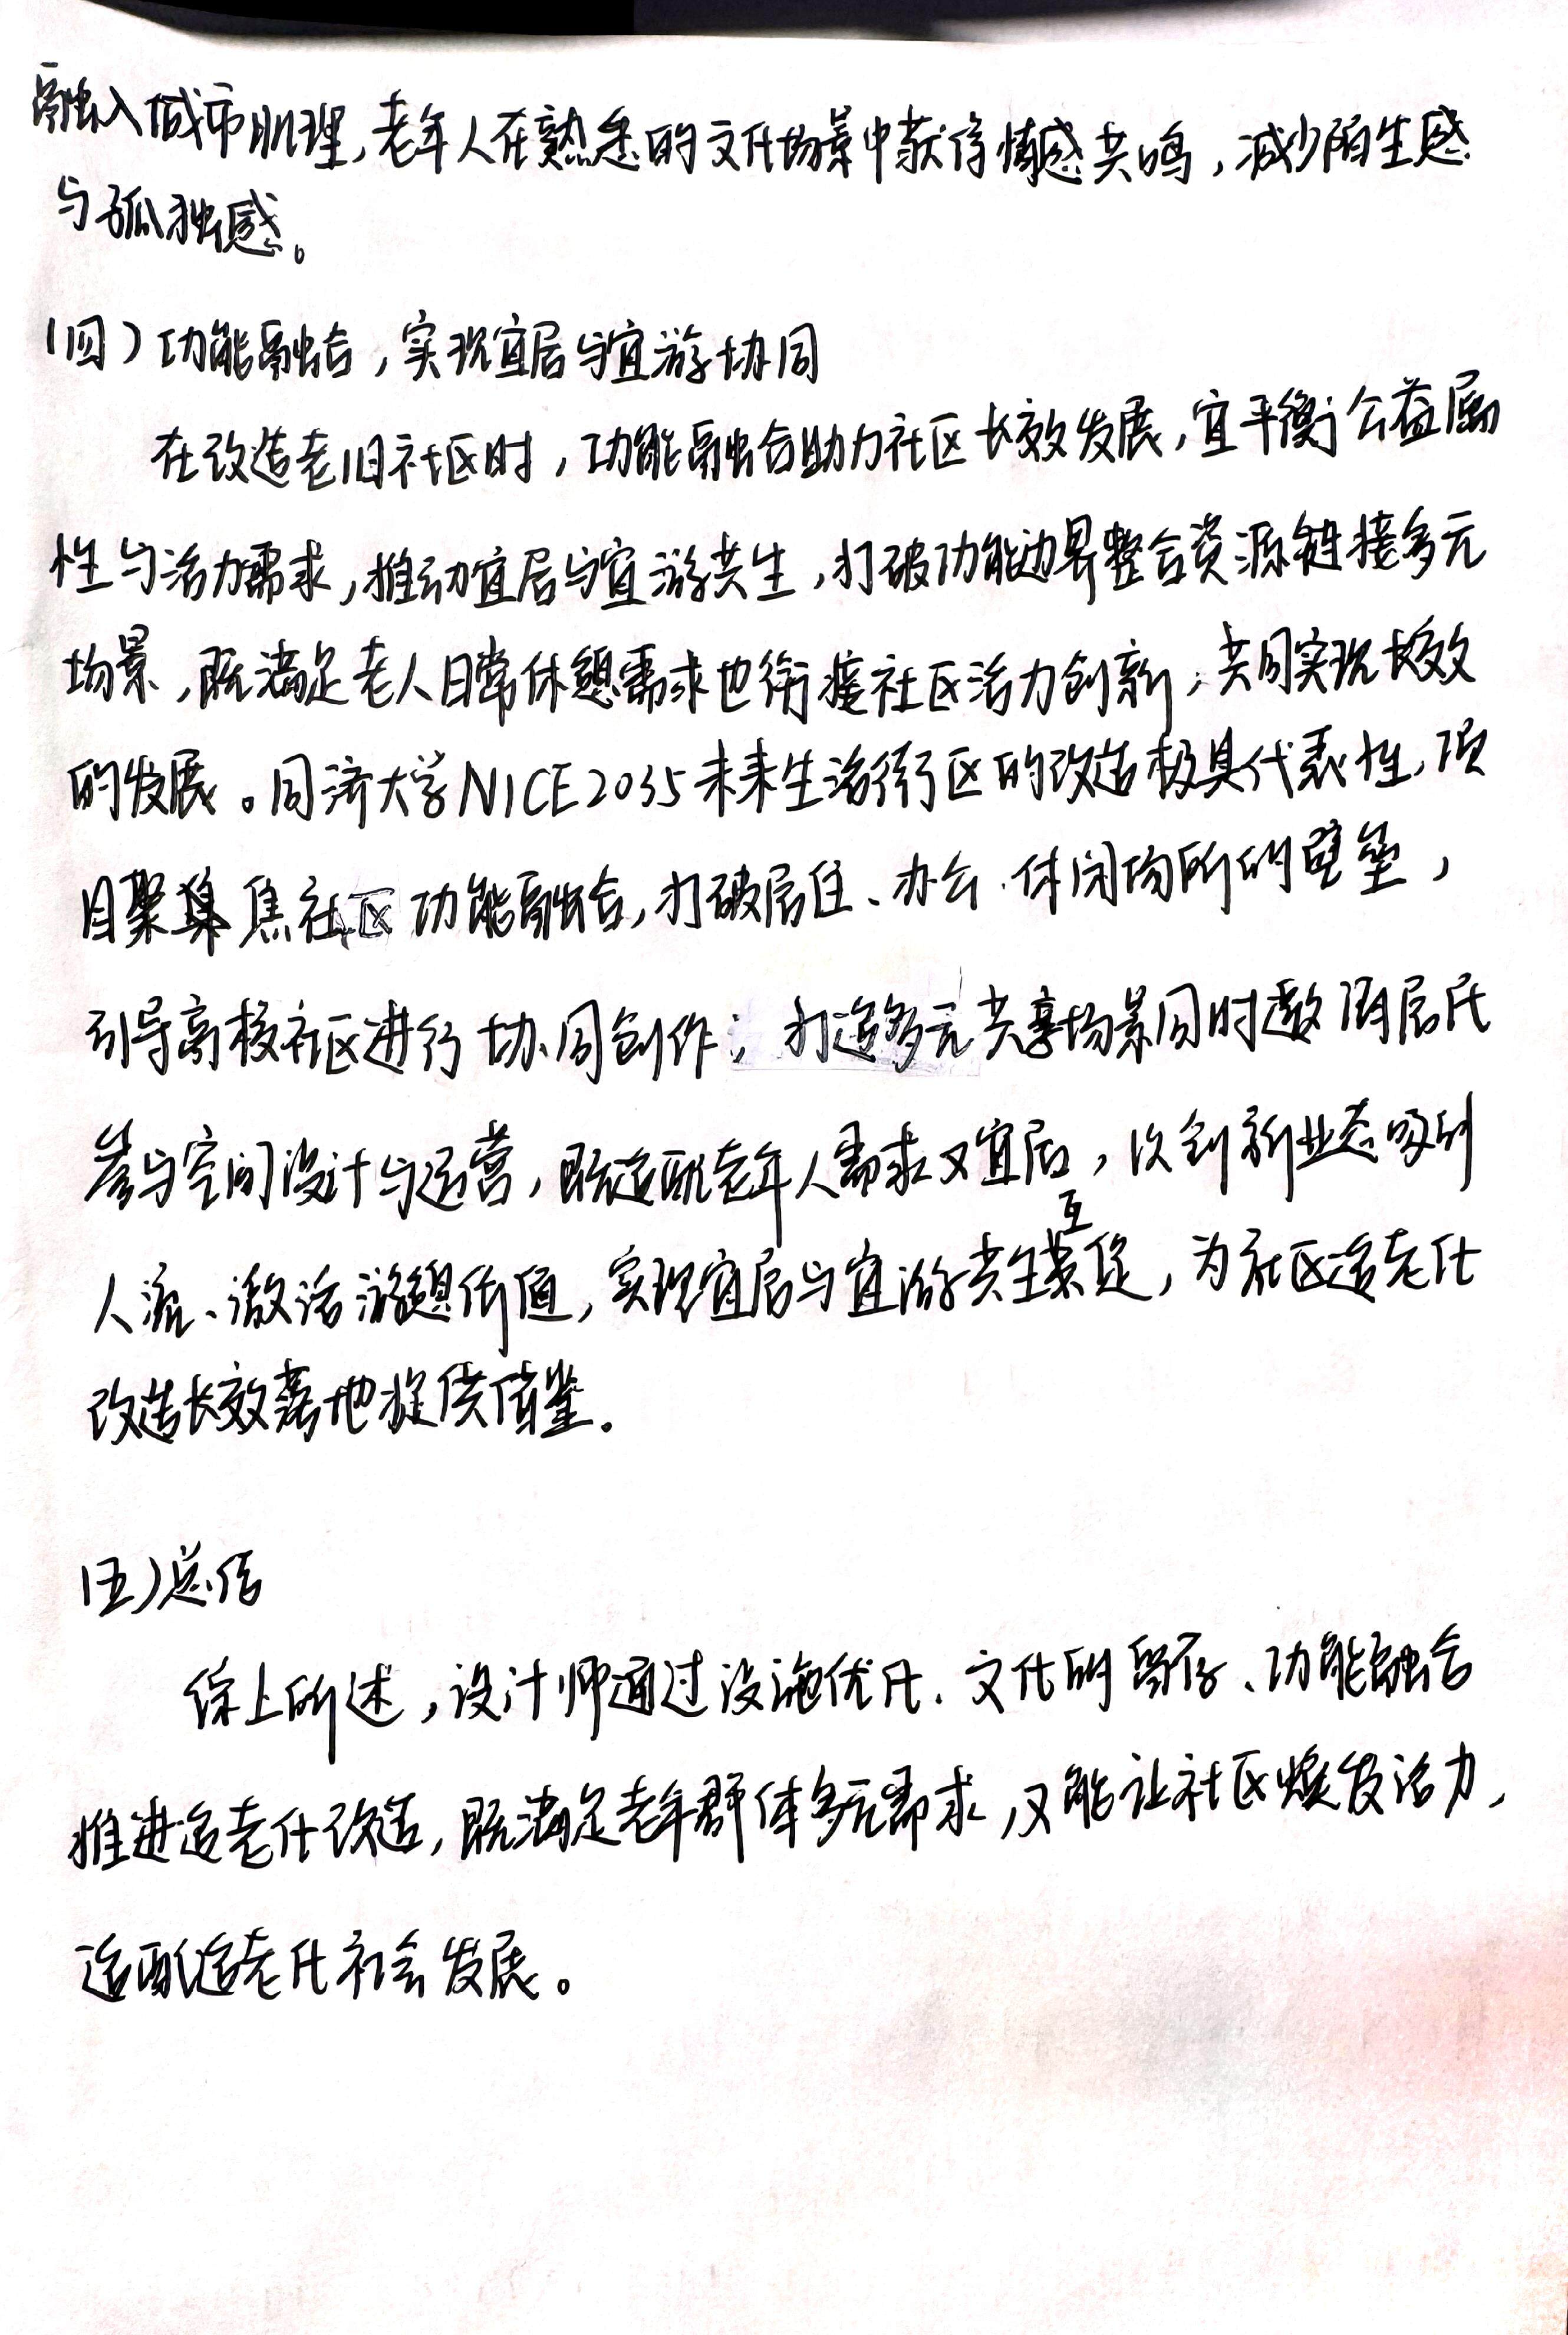 融入城市肌理,老年人在熟悉的文化场景中获得情感共鸣,减少陌生感
与孤独感。
(四)功能融合,实现宜居与宜游协同
在改造老旧社区时,功能融合助力社区长效发展,宜平衡公益属
性与活力需求,推动宜居与宜游共生,打破功能边界整合资源链接多元
场景,既满足老人日常休憩需求也衔接社区活力创新,共同实现长效
的发展。同济大学NICE2035未来生活街区的改造极具代表性,项
目聚焦社区功能融合,打破居住、办公、休闲场所的壁垒,
引导高校社区进行协同创作;打造多元共享场景同时邀请居民
参与空间设计与运营,既适配老年人需求又宜居,以创新业态吸引
人流、激活游憩价值,实现宜居与宜游共生互促,为社区适老化
改造长效落地提供借鉴.
(五)总结
综上所述,设计师通过设施优化、文化的留存、功能融合
推进适老化改造,既满足老年群体多元需求,又能让社区焕发活力,
适配适老化社会发展。